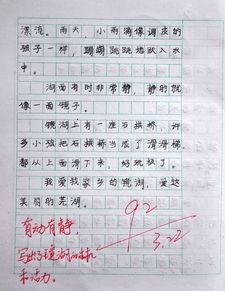 漂流。雨天,小雨滴像调皮的
孩子一样,蹦蹦跳跳地跃入水
中。
湖面有时非常静,静的就
像一面镜子。
镜湖上有一座石拱桥,许
多小孩把石拱桥当成了滑滑梯,
都从上面滑下来,好玩极了。
我爱我家乡的镜湖,爱这
美丽的芜湖。
92
3.22
有动有静,
写出了镜湖的
和活力。